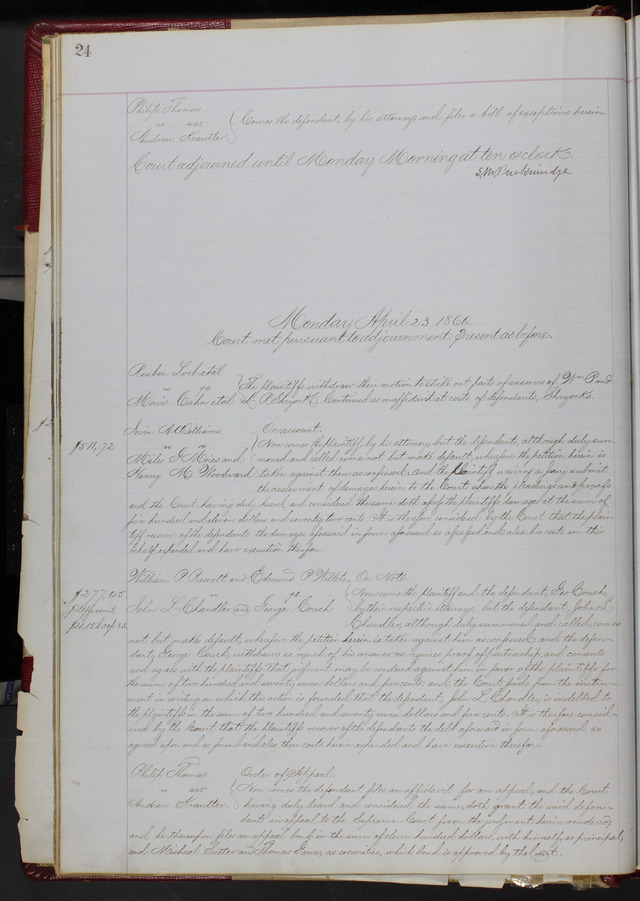 24
Philip Thomas
" vs
Andrew Krautter } Comes the defendant, by his attorney and files a bill of exceptions herein
Court adjourned until Monday Morning at ten o'clock.
S.M. Breckinridge
Monday April 23 1860.
Court met pursuant to adjournment. Present as before.
Reuben et al
" vs } The plaintiffs withdraw their motion to strike out parts of answers of Wm P and
Morris Cahn et al L P Shryock. Continued on affidavit at costs of defendants, Shryocks.
Irvin Williams On account.
$511,72 " vs } Now comes the plaintiff, by his attorney, but the defendant, although duly sum
Miles G Moies and moned and called come not but make default, wherefore the petition herein is
Henry M Woodward taken against them as confessed; and the plaintiff waiving a jury submit
the assessment of damages herein to the Court upon the pleadings and proofs
and the Court having duly heard and considered the same doth assess the plaintiffs damage at the sum of
five hundred and eleven dollars and seventy two cents. It is therefore considered by the Court that the plain
tiff recover of the defendants the damages aforesaid in form aforesaid as assessed and also his costs in this
behalf expended and have execution therefor.
William P Prescott and Edmund P On Note
$277,05 " vs } Now come the plaintiffs and the defendant, Geo Couch,
John L Chandler and George Couch by their respective attorneys, but the defendant, John L
Chandler, although duly summoned and called, comes
not but makes default, wherefore the petition herein is taken against him as confessed; and the defen-
dant, George Couch, withdraws so much of his answer as requires proof of partnership, and consents
and agrees with the plaintiffs that judgment may be rendered against him in favor of the plaintiffs for
the sum of two hundred and seventy seven dollars and five cents; and the Court finds from the instru-
ment in writing on which the action is founded that the defendant, John L Chandler is indebted to
the plaintiffs in the sum of two hundred and seventy seven dollars and five cents. It is therefore consid-
ered by the Court that the plaintiffs recover of the defendants the debt aforesaid in form aforesaid as
agreed upon and so found and also their costs herein expended and have execution therefor.
Philip Thomas Order of Appeal.
" vs } Now comes the defendant files an affidavit for an appeal, and the Court
Andrew Krautter having duly heard and considered the same, doth grant the said defen-
dant an appeal to the Supreme Court from the judgment herein rendered;
and he thereupon files an appeal bond in the sum of eleven hundred dollars, with himself, as principal,
and Michael Sutter and Thomas Gauss, as securities, which bond is approved by the Court.